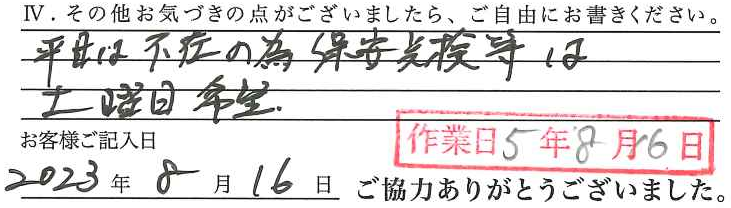 Ⅳ．その他お気づきの点がございましたら、ご自由にお書きください。
平日は不在の為保安点検等は
土曜日希望.
お客様ご記入日
作業日5年8月16日
2023年8月16日 ご協力ありがとうございました。